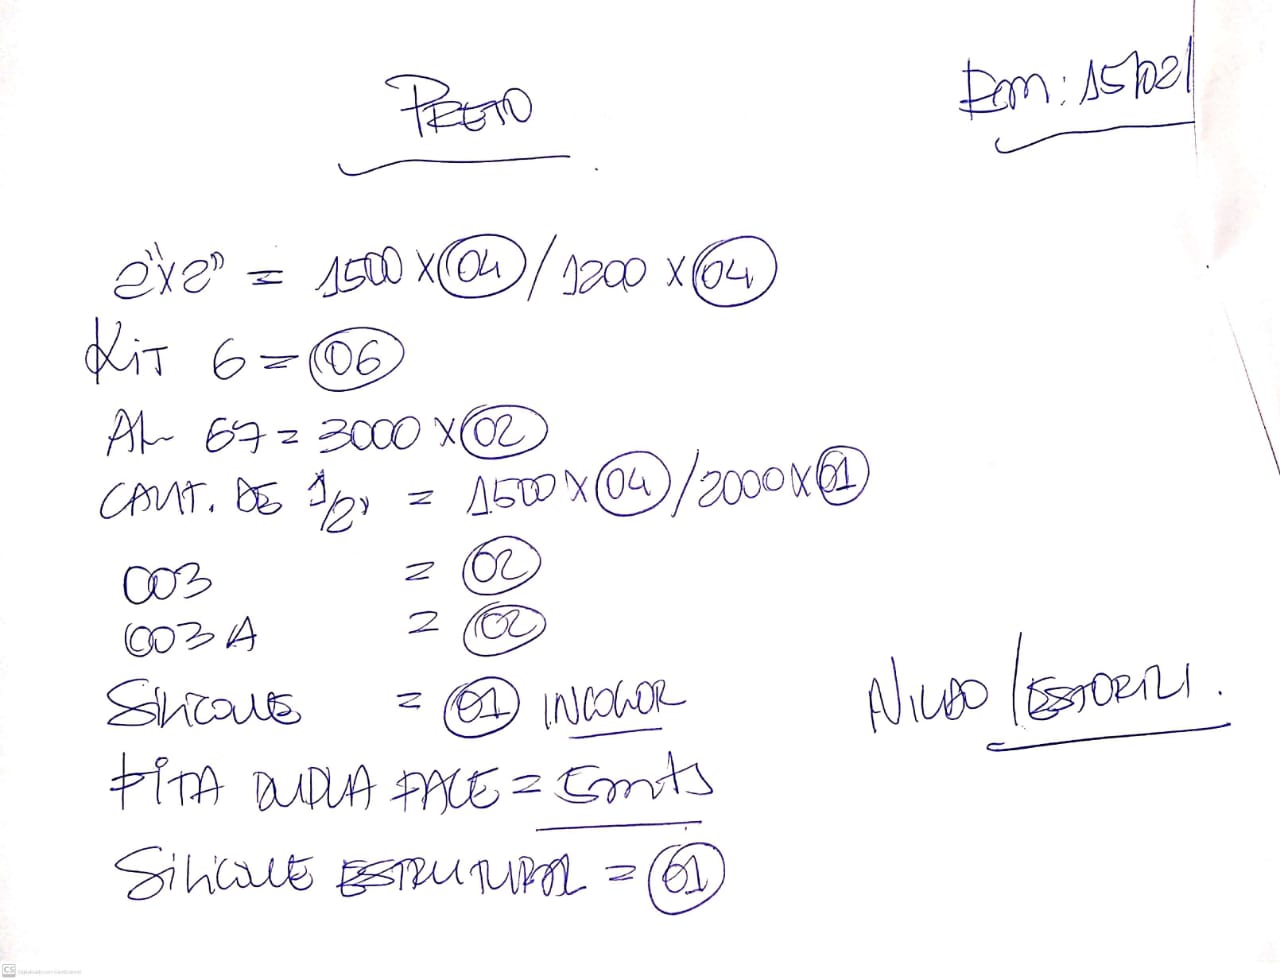 PRETO
Rom: 15/02/
2"x2" = 1500 X 04 / 1200 X 04
KIT 6 = 06
AL 67 = 3000 X 02
CANT. DE 1/2" = 1500 X 04 / 2000 X 01
003 = 02
003 A = 02
SILICONE = 01 INCOLOR
NILDO / ESTORIL.
FITA DUPLA FACE = 5mts
SILICONE ESTRUTURAL = 01
CS Digitalizado com CamScanner